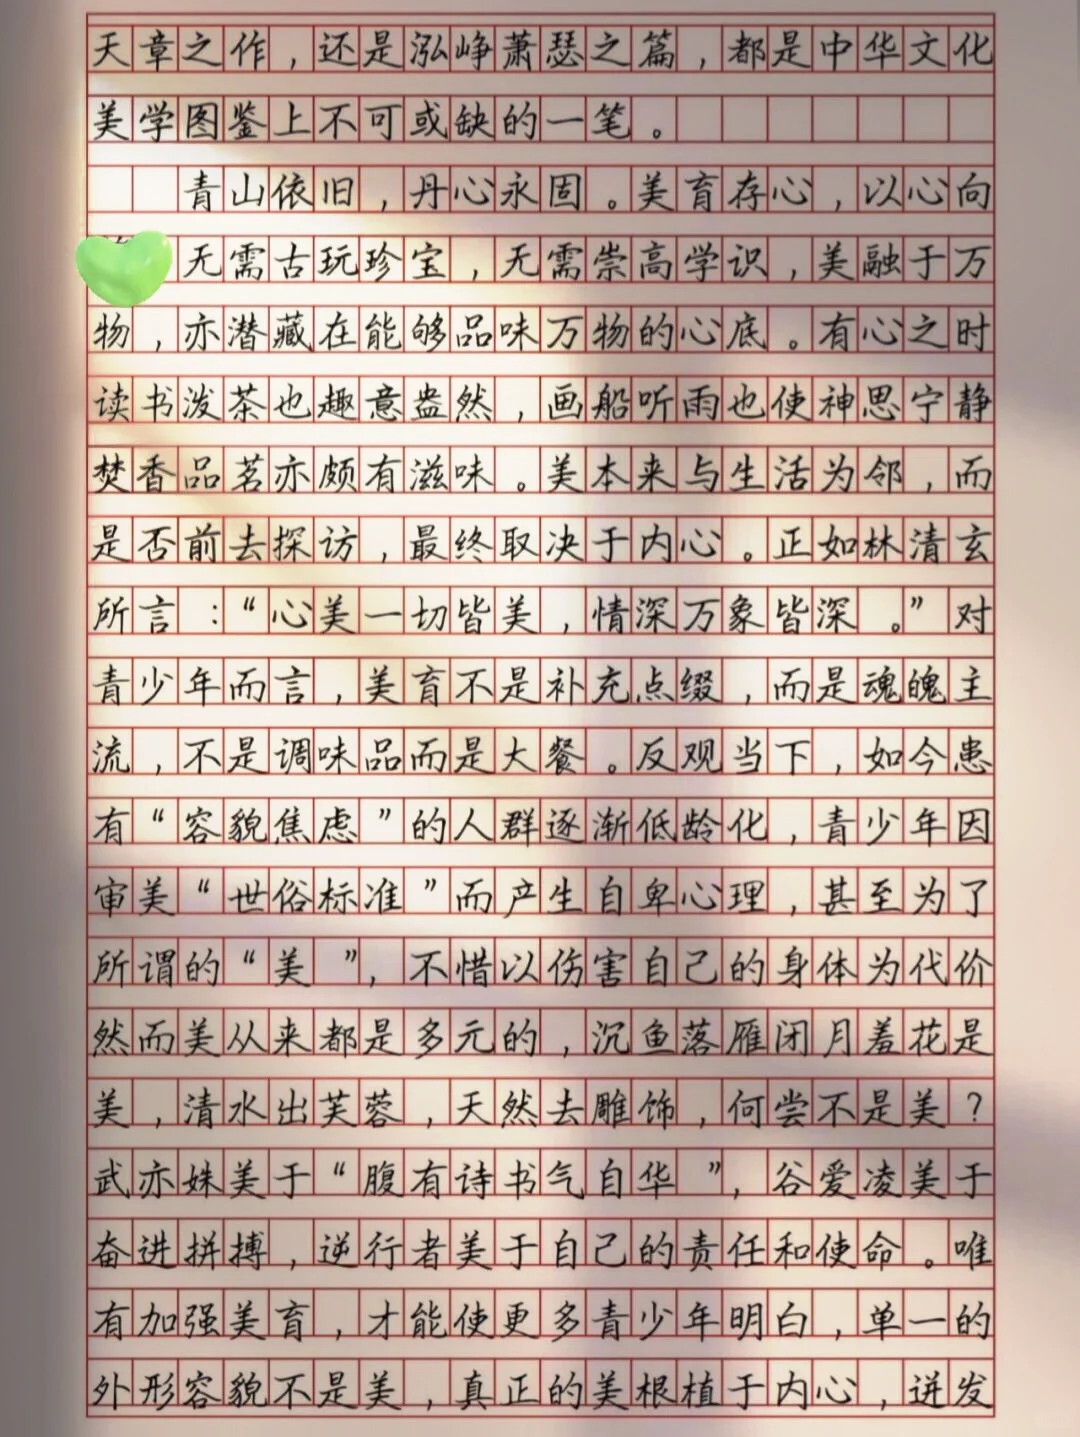 天章之作，还是泓峥萧瑟之篇，都是中华文化
美学图鉴上不可或缺的一笔。
青山依旧，丹心永固。美育存心，以心向
无需古玩珍宝，无需崇高学识，美融于万
物，亦潜藏在能够品味万物的心底。有心之时
读书泼茶也趣意盎然，画船听雨也使神思宁静
焚香品茗亦颇有滋味。美本来与生活为邻，而
是否前去探访，最终取决于内心。正如林清玄
所言：“心美一切皆美，情深万象皆深。”对
青少年而言，美育不是补充点缀，而是魂魄主
流，不是调味品而是大餐。反观当下，如今患
有“容貌焦虑”的人群逐渐低龄化，青少年因
审美“世俗标准”而产生自卑心理，甚至为了
所谓的“美”，不惜以伤害自己的身体为代价
然而美从来都是多元的，沉鱼落雁闭月羞花是
美，清水出芙蓉，天然去雕饰，何尝不是美？
武亦姝美于“腹有诗书气自华”，谷爱凌美于
奋进拼搏，逆行者美于自己的责任和使命。唯
有加强美育，才能使更多青少年明白，单一的
外形容貌不是美，真正的美根植于内心，迸发